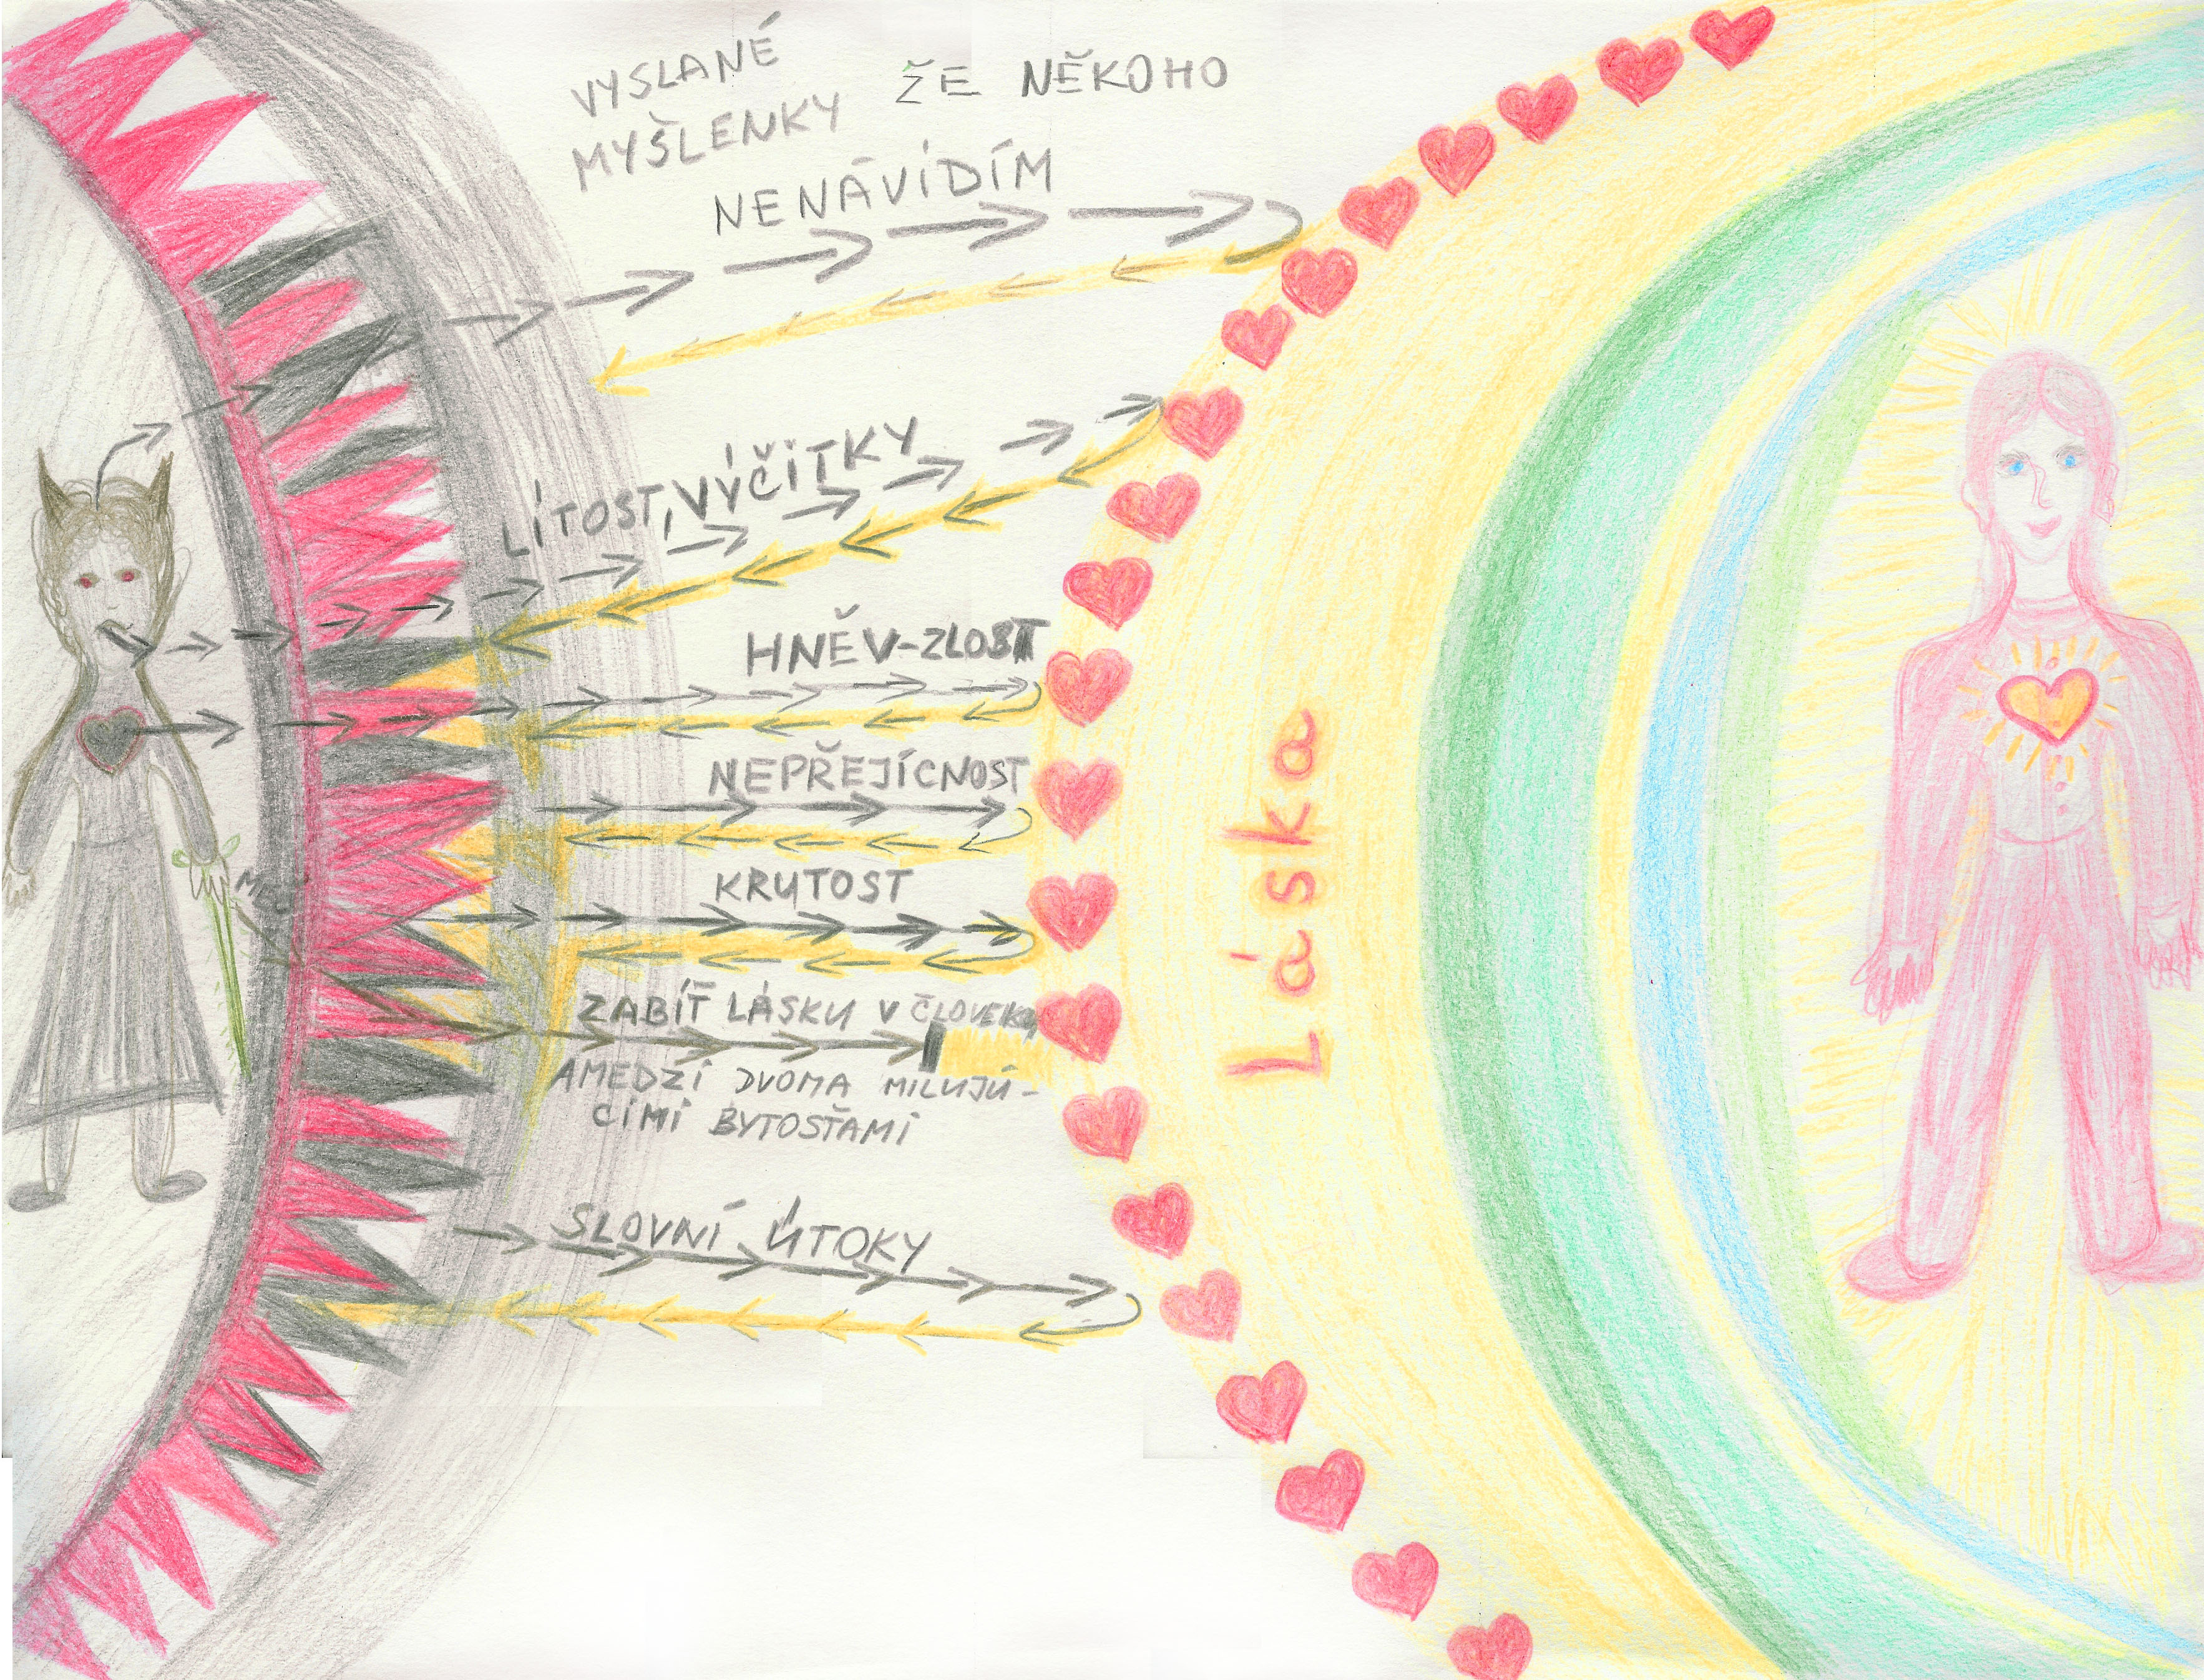 VYSLANÉ
MYŠLENKY ŽE NĚKOHO
NENÁVÍDÍM
LÍTOST, VÝČITKY
HNĚV-ZLOBT
NEPŘEJÍCNOST
KRUTOST
ZABÍŤ LÁSKU V ČLOVEKU
AMEDZI DVOMA MILUJÚ-
CIMI BYTOSŤAMI
SLOVNÍ ÚTOKY
Láska